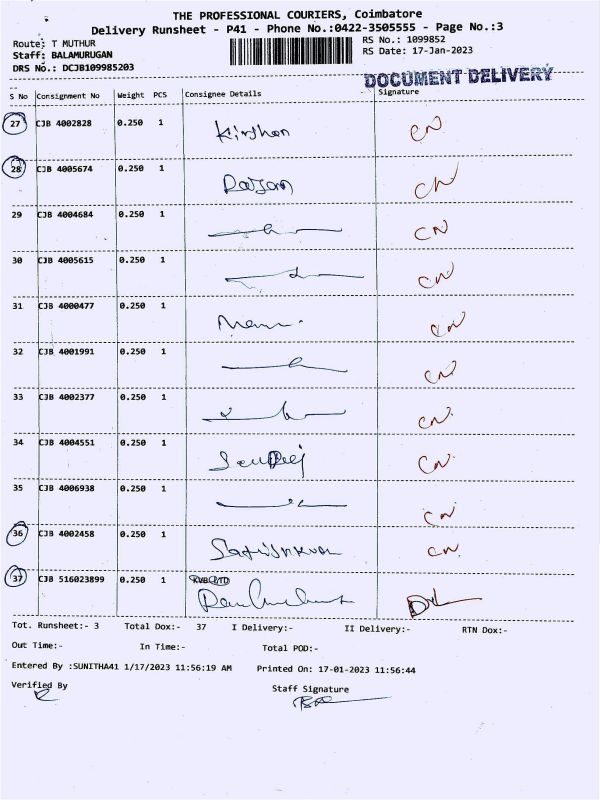 THE PROFESSIONAL COURIERS, Coimbatore
Delivery Runsheet - P41 - Phone No.:0422-3505555 - Page No.:3
Route: T MUTHUR
RS No.: 1099852
Staff: BALAMURUGAN
RS Date: 17-Jan-2023
DRS No.: DCJB109985203
DOCUMENT DELIVERY
S No Consignment No Weight PCS Consignee Details Signature
27 CJB 4002828 0.250 1 CN
28 CJB 4005674 0.250 1 CN
29 CJB 4004684 0.250 1 CN
30 CJB 4005615 0.250 1 CN
31 CJB 4000477 0.250 1 CN
32 CJB 4001991 0.250 1 CN
33 CJB 4002377 0.250 1 CN
34 CJB 4004551 0.250 1 CN
35 CJB 4006938 0.250 1 CN
36 CJB 4002458 0.250 1 CN
37 CJB 516023899 0.250 1
Tot. Runsheet:- 3 Total Dox:- 37 I Delivery:- II Delivery:- RTN Dox:-
Out Time:- In Time:- Total POD:-
Entered By :SUNITHA41 1/17/2023 11:56:19 AM Printed On: 17-01-2023 11:56:44
Verified By
Staff Signature